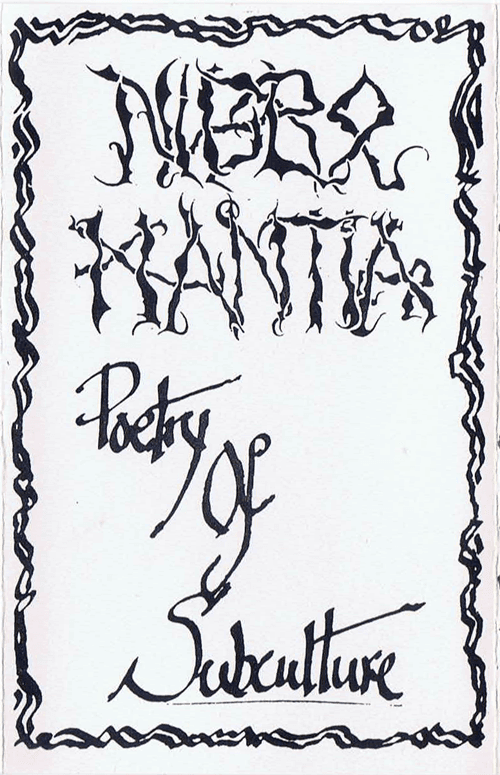 NIGRO
MANTIA
Poetry
Of
Subculture